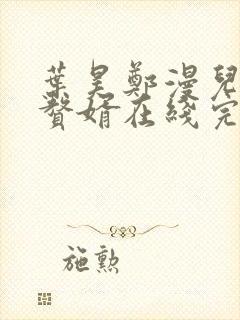 葉昊鄭漫兒
贅婿在綫完
施勲